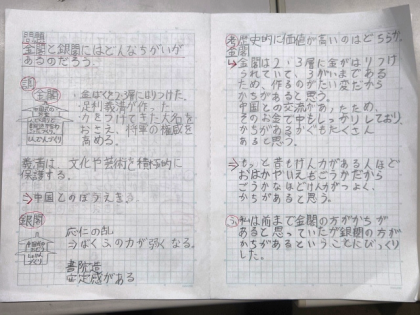 課題
金閣と銀閣にはどんなちがいがあるのだろう。
調
金閣
・金ぱくで2・3層にはりつけた。
・足利義満が作った。
・力をつけてきた大名を
おさえ、将軍の権威を
高める。
しんでんづくり
義満は、文化や芸術を積極的に
保護する。
→中国とのぼうえきふ
銀閣
応仁の乱
→ばくふの力が弱くなる。
書院造
安定感がある
考 歴史的に価値が高いのはどちらか。
金閣
→金閣は2・3層に金がはりつけ
られていて、3がいまである
ため、作るのがたい変だから
かちがあると思う。
中国との交流があったため、
そのお金で中もしっかりしており、
かちがあるかぐもたくさん
あると思う。
→もっと昔もけん力がある人ほど
おはかやいえもごうかだから
ごうかなほどけん力がつよく、
かちがあると思う。
ふ 私は前まで金閣の方がかちが
あると思っていたが銀閣の方が
かちがあるということにびっくり
した。